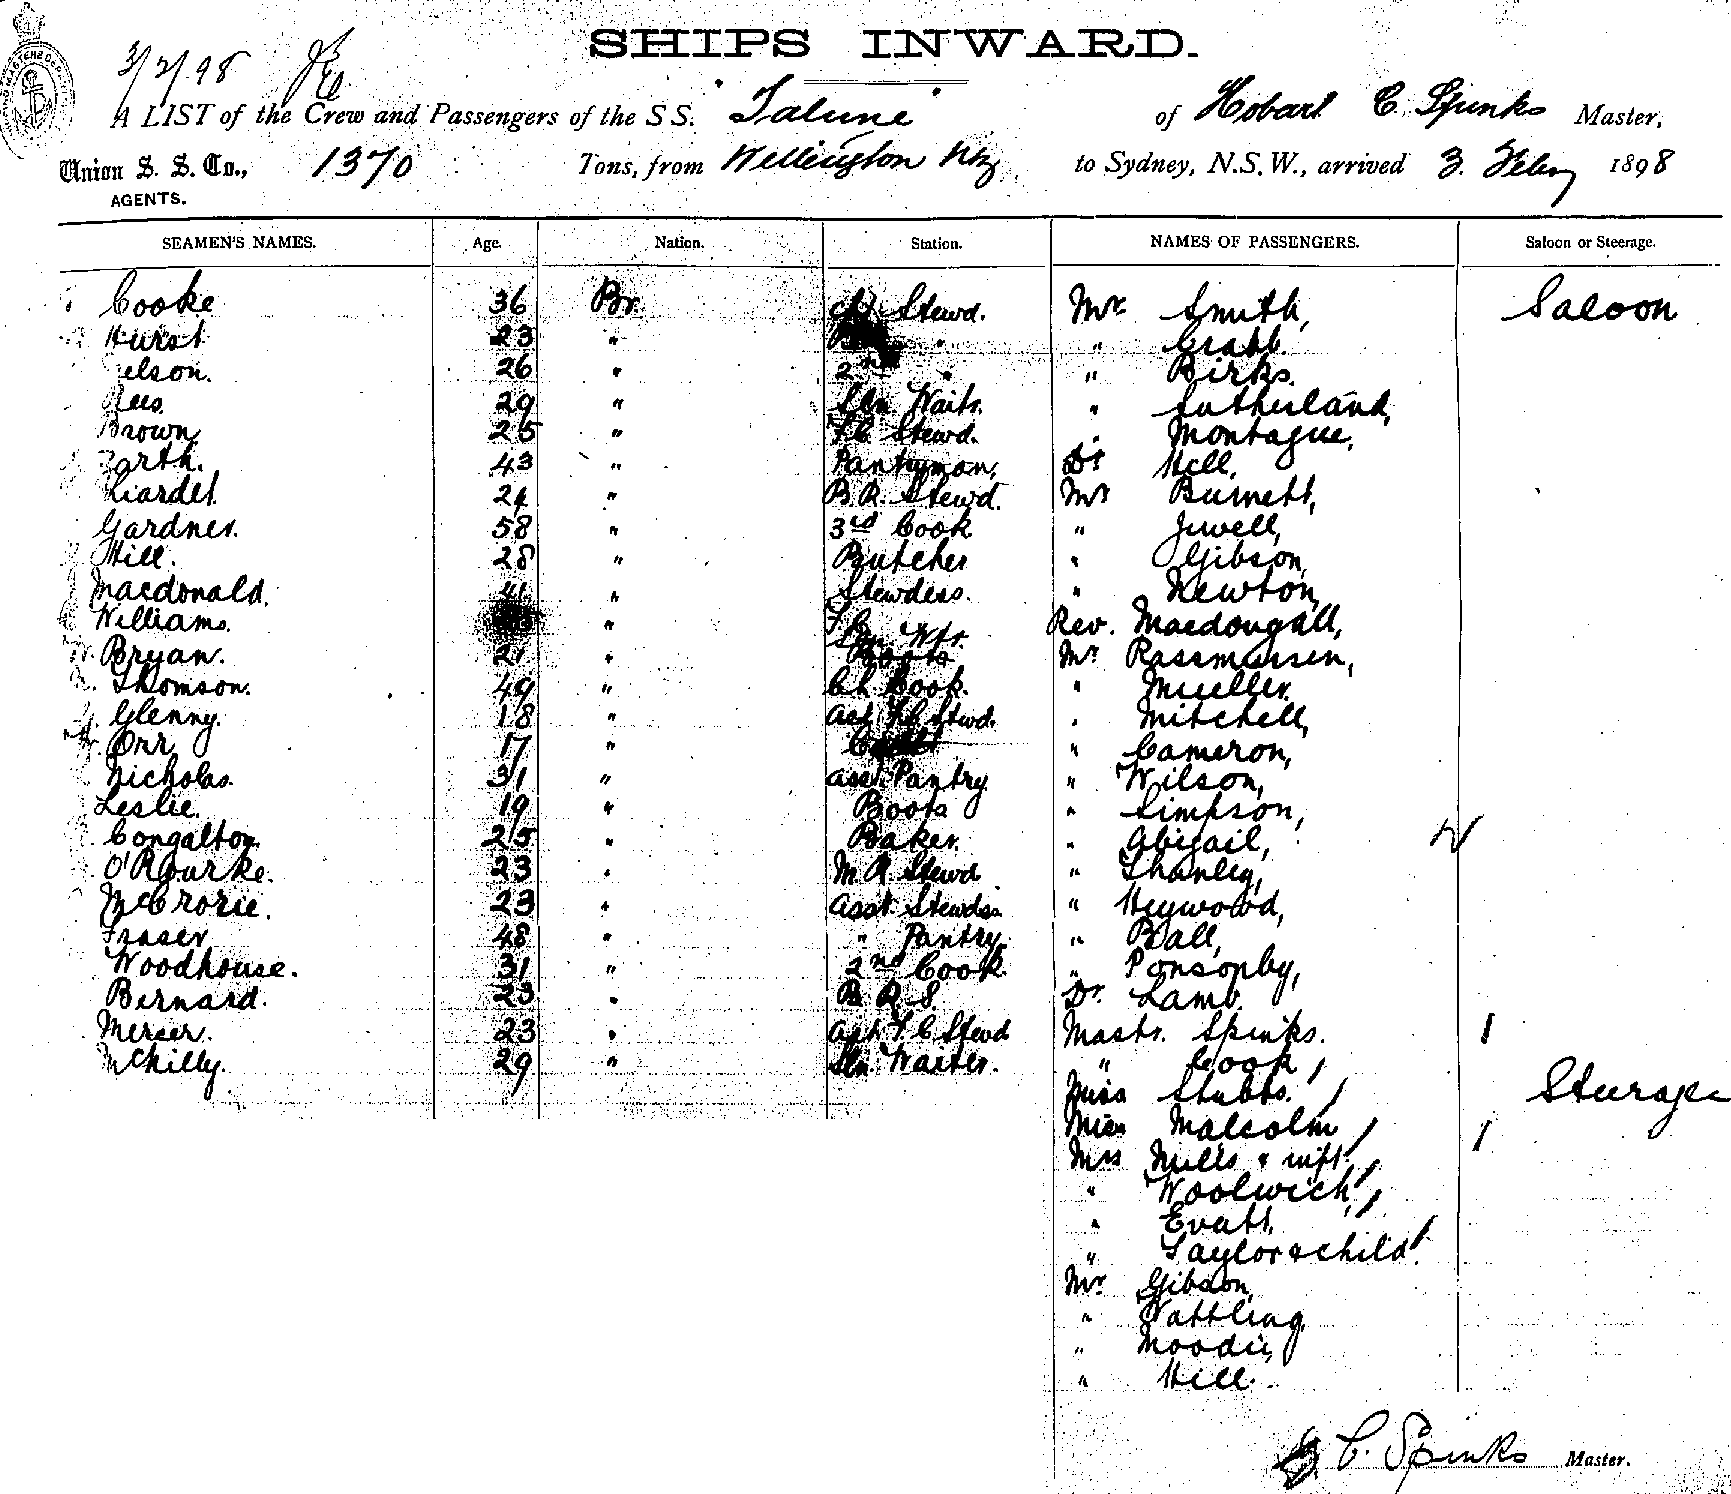 SHIPS INWARD.
3/2/98
A LIST of the Crew and Passengers of the S S. "Talune" of Hobart C. Spinks Master,
Union S. S. Co., 1370 Tons, from Wellington to Sydney, N.S.W., arrived 3. Feby 1898
AGENTS.
SEAMEN'S NAMES. Age. Nation. Station. NAMES OF PASSENGERS. Saloon or Steerage.
Cooke 36 Br. Stewd. Mr. Smith, Saloon
Hurst 23 " " " Crabb.
elson. 26 " 2nd " " Birks.
29 " Sln Waitr. " Sutherland,
Brown 25 " F.C. Stewd. " Montague,
43 " Pantryman, Dr Hill,
Liardet 24 " B.R. Stewd. Mr Burnett,
Gardner. 58 " 3rd Cook " Jewell,
Hill. 28 " Butcher " Gibson,
Macdonald. 41 " Stewdess. " Newton,
Williams. " Rev. Macdougall,
Bryan. 21 " Mr Rassmussen,
Thomson. 49 " Ch Cook. " Mueller.
Glenny. 18 " " Mitchell,
Orr 17 " " Cameron,
Nicholas. 31 " asst. Pantry " Wilson,
Leslie. 19 " Boots " Simpson,
Congalton. 25 " Baker. " Abigail,
O'Rourke. 23 " M R Stewd " Shanley,
McCrorie. 23 " asst Stewdss. " Heywood,
Fraser 48 " " Pantry. " Ball,
Woodhouse. 31 " 2nd Cook. " Ponsonby,
Bernard. 23 " B R S. Dr. Lamb.
Mercer. 23 " Mastr. Spinks. 1
McKilly. 29 " Sln. Waiter. " Cook /
Miss Stubbs. / Steerage
Miss Malcolm / 1
Mrs Mills & inft. /
" Woolwich, /
" Evatt.
" Taylor & child /
Mr. Gibson,
" Wattling
" Moodie,
" Hill.
C. Spinks Master.